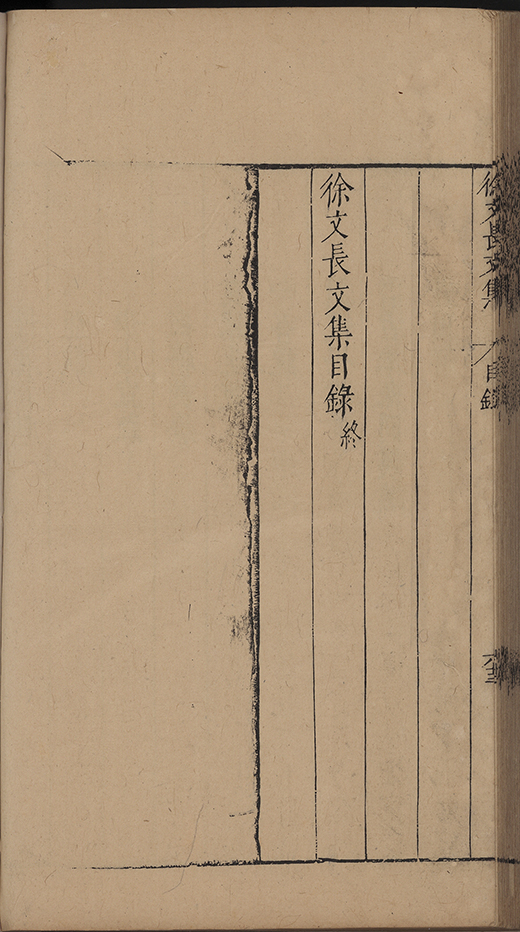 徐文長文集
目錄
徐文長文集目錄終